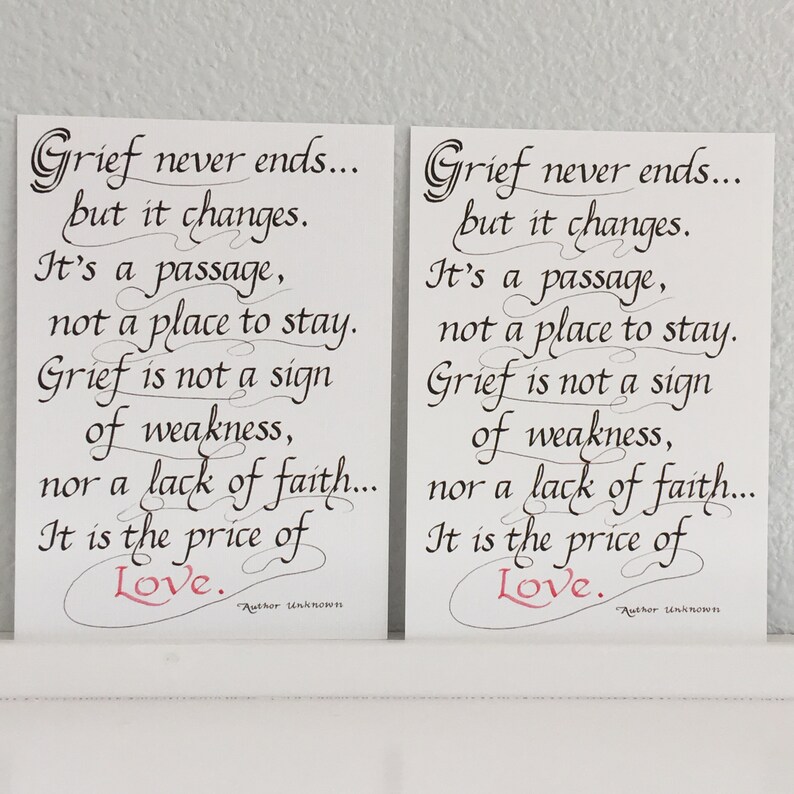 Grief never ends...
but it changes.
It's a passage,
not a place to stay.
Grief is not a sign
of weakness,
nor a lack of faith...
It is the price of
Love.
Author Unknown
Grief never ends...
but it changes.
It's a passage,
not a place to stay.
Grief is not a sign
of weakness,
nor a lack of faith...
It is the price of
Love.
Author Unknown